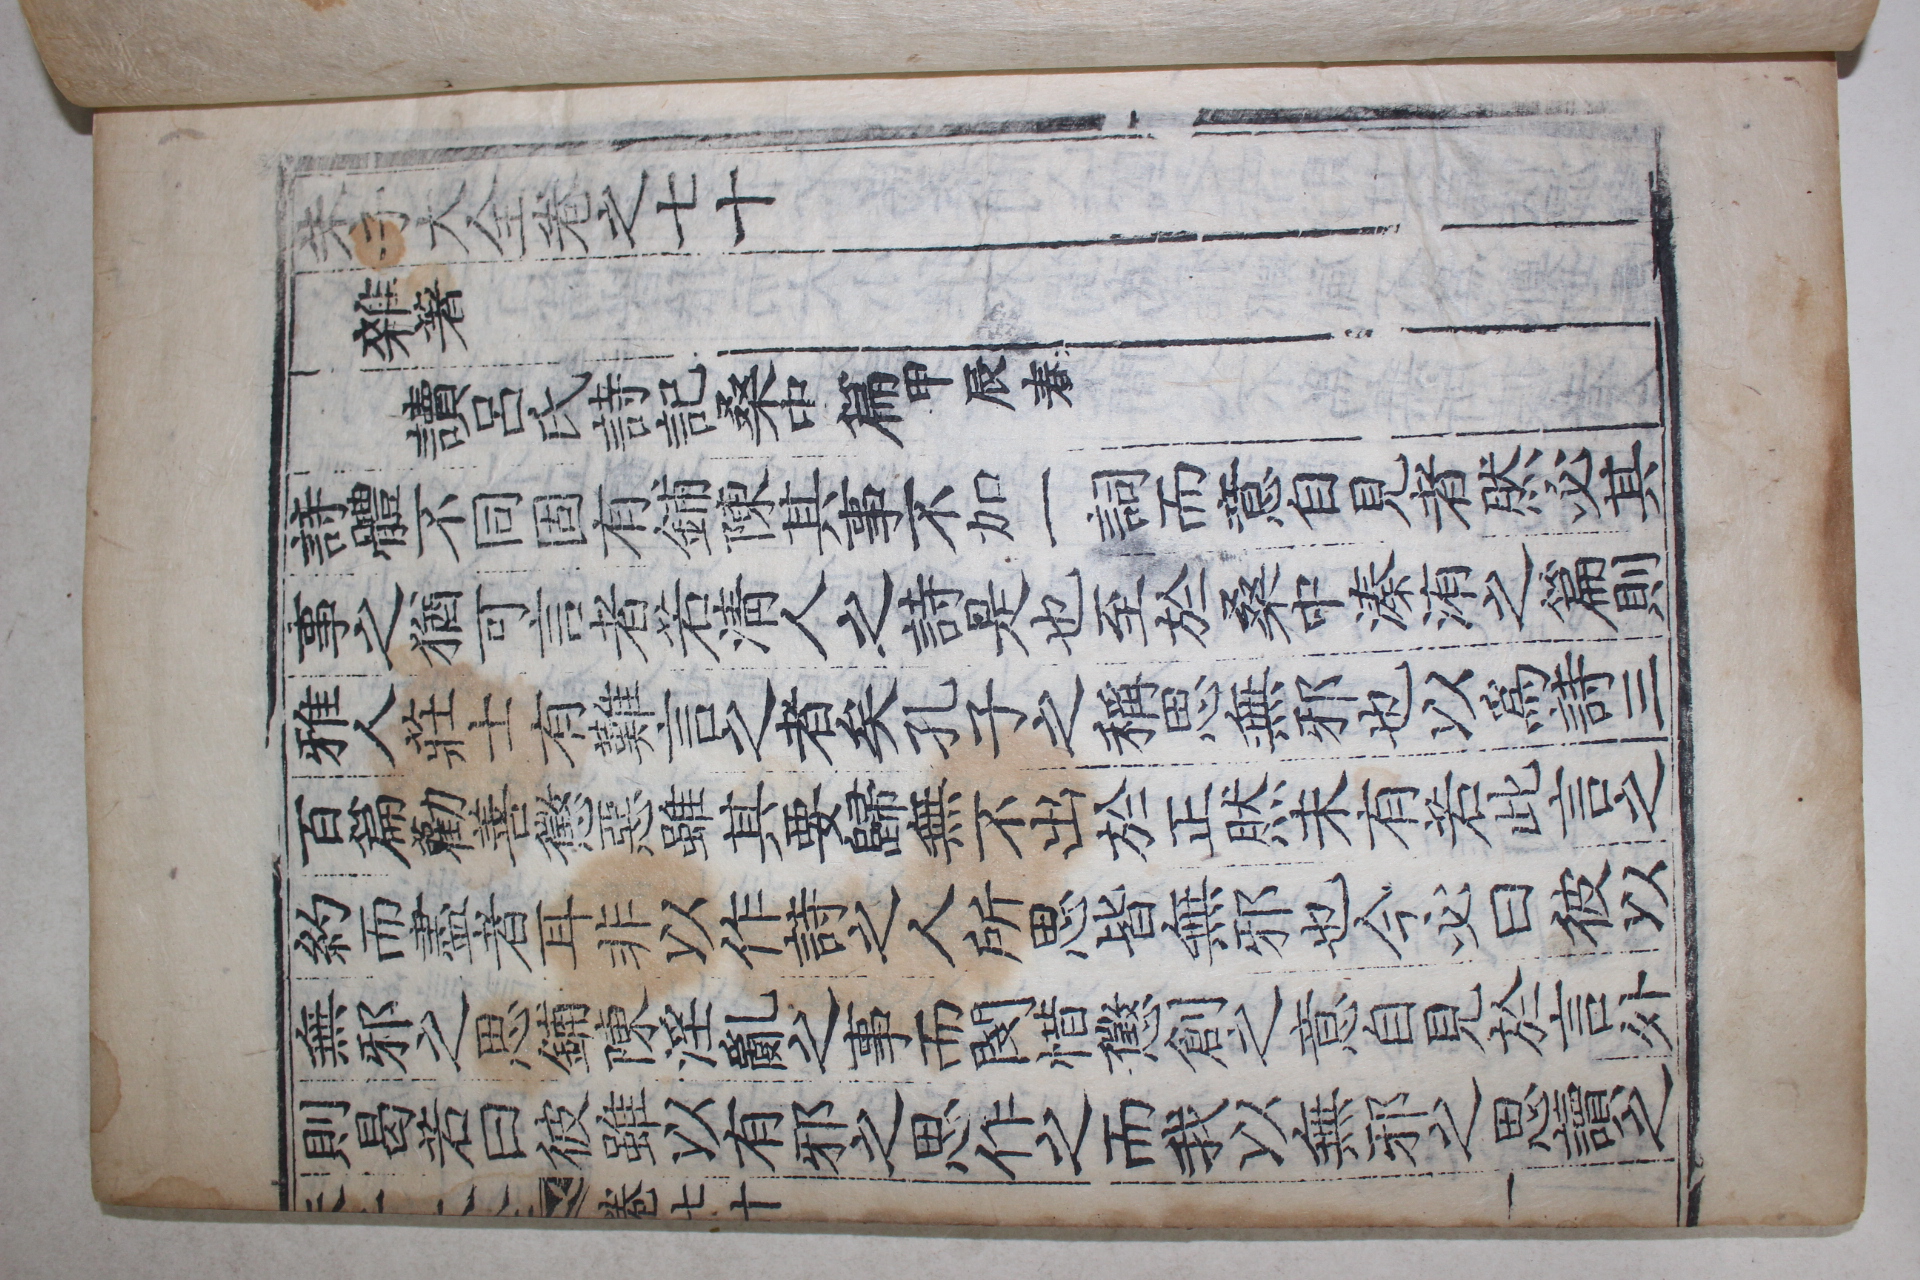 朱子大全卷之七十
雜著
讀呂氏詩記桑中篇甲辰春
詩體不同固有鋪陳其事不加一詞而意自見者然必其
事之猶可言者若淸人之詩是也至於桑中溱洧之篇則
雅人莊士有難言之者矣孔子之稱思無邪也以爲詩三
百篇勸善懲惡雖其要歸無不出於正然未有若此言之
約而盡者耳非以作詩之人所思皆無邪也今必曰彼以
無邪之思鋪陳淫亂之事而閔惜懲創之意自見於言外
則曷若曰彼雖以有邪之思作之而我以無邪之思讀之
卷七十
一